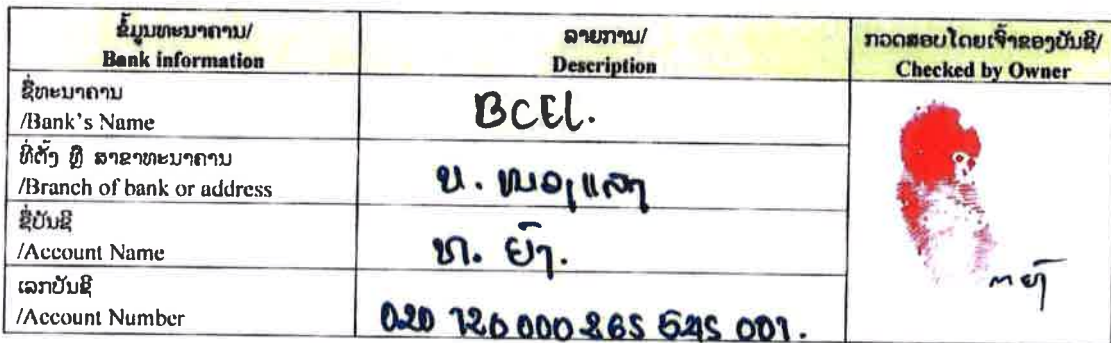 ຂໍ້ມູນທະນາຄານ/
Bank information
ລາຍການ/
Description
ກວດສອບໂດຍເຈົ້າຂອງບັນຊີ/
Checked by Owner
ຊື່ທະນາຄານ
/Bank's Name
BCEL.
ທີ່ຕັ້ງ ຫຼື ສາຂາທະນາຄານ
/Branch of bank or address
ບ. ໜອງແສງ
ຊື່ບັນຊີ
/Account Name
ທ. ຍົາ.
ເລກບັນຊີ
/Account Number
020 120 000 265 545 001.